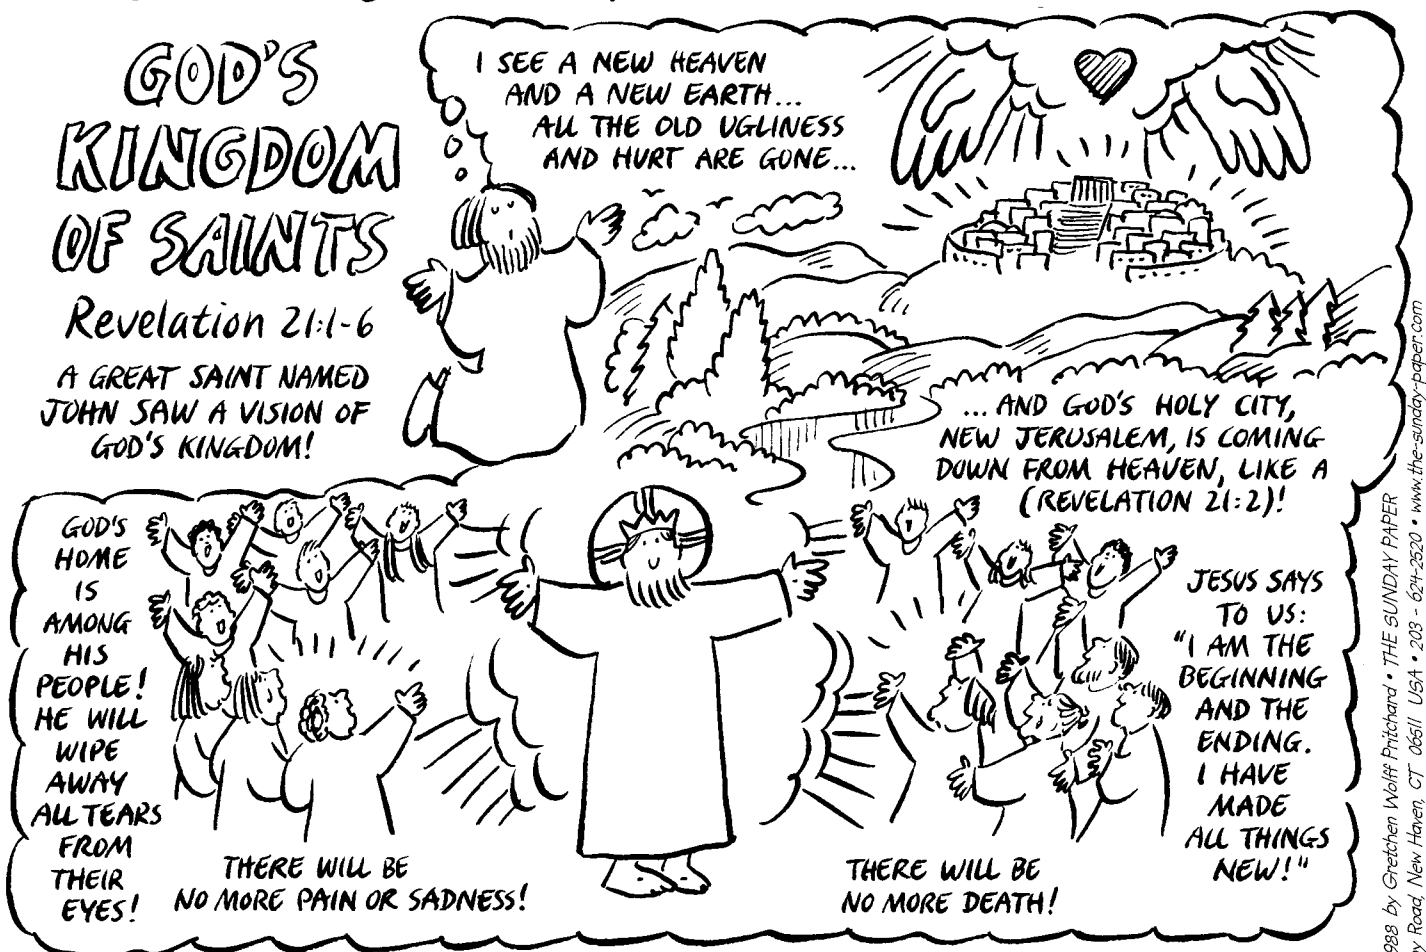 GOD'S
KINGDOM
OF SAINTS
Revelation 21:1-6
A GREAT SAINT NAMED
JOHN SAW A VISION OF
GOD'S KINGDOM!
I SEE A NEW HEAVEN
AND A NEW EARTH...
ALL THE OLD UGLINESS
AND HURT ARE GONE...
... AND GOD'S HOLY CITY,
NEW JERUSALEM, IS COMING
DOWN FROM HEAVEN, LIKE A
(REVELATION 21:2)!
GOD'S
HOME
IS
AMONG
HIS
PEOPLE!
HE WILL
WIPE
AWAY
ALL TEARS
FROM
THEIR
EYES!
THERE WILL BE
NO MORE PAIN OR SADNESS!
THERE WILL BE
NO MORE DEATH!
JESUS SAYS
TO US:
"I AM THE
BEGINNING
AND THE
ENDING.
I HAVE
MADE
ALL THINGS
NEW!"
988 by Gretchen Wolff Pritchard • THE SUNDAY PAPER
Road, New Haven, CT 06511 USA • 203 - 624-2520 • www.the-sunday-paper.com